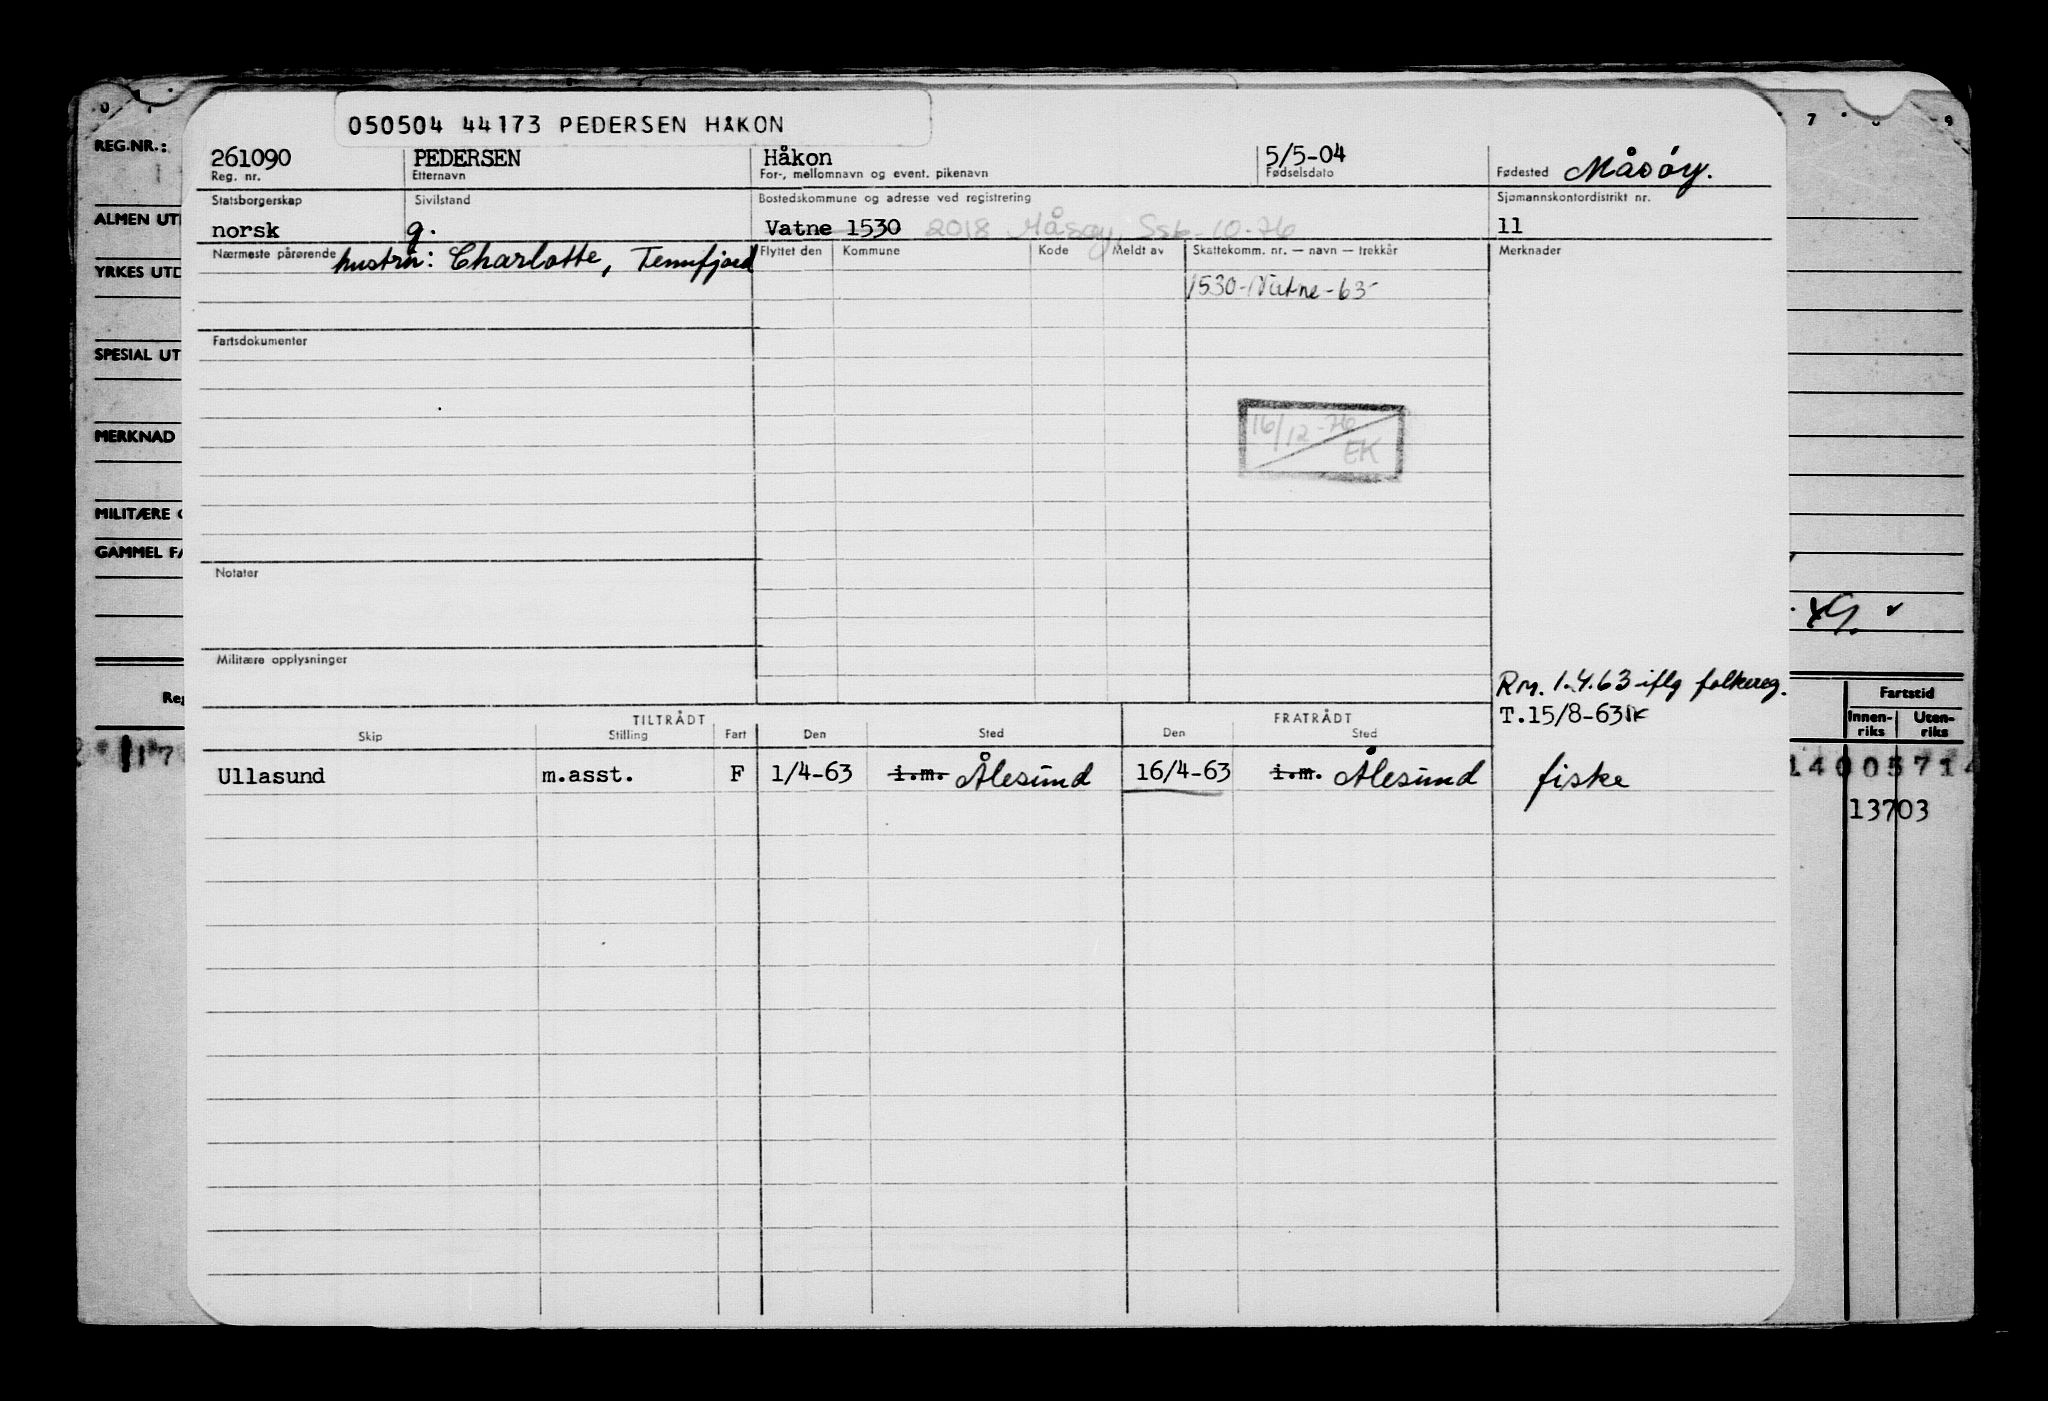 050504 44173 PEDERSEN HÅKON
REG.NR.:
261090 PEDERSEN Håkon 5/5-04 Fødested Måsøy.
Reg. nr. Etternavn For-, mellomnavn og event. pikenavn Fødselsdato
Statsborgerskap Sivilstand Bostedskommune og adresse ved registrering Sjømannskontordistrikt nr.
ALMEN UTD
norsk g. Vatne 1530 2018 Måsøy, Ssk-10-76 11
Nærmeste pårørende hustru: Charlotte, Tennfjord Flyttet den Kommune Kode Meldt av Skattekomm. nr. — navn — trekkår Merknader
YRKES UTD
1530-Vatne-63-
Fartsdokumenter
SPESIAL UT
16/12-76
EK
MERKNAD
MILITÆRE
GAMMEL FA
Notater
Militære opplysninger
Rm. 1.4.63 iflg folkereg.
T.15/8-63
Fartstid
Innen-riks Uten-riks
TILTRÅDT FRATRÅDT
Skip Stilling Fart Den Sted Den Sted
Ullasund m.asst. F 1/4-63 i.m. Ålesund 16/4-63 i.m. Ålesund fiske
13703